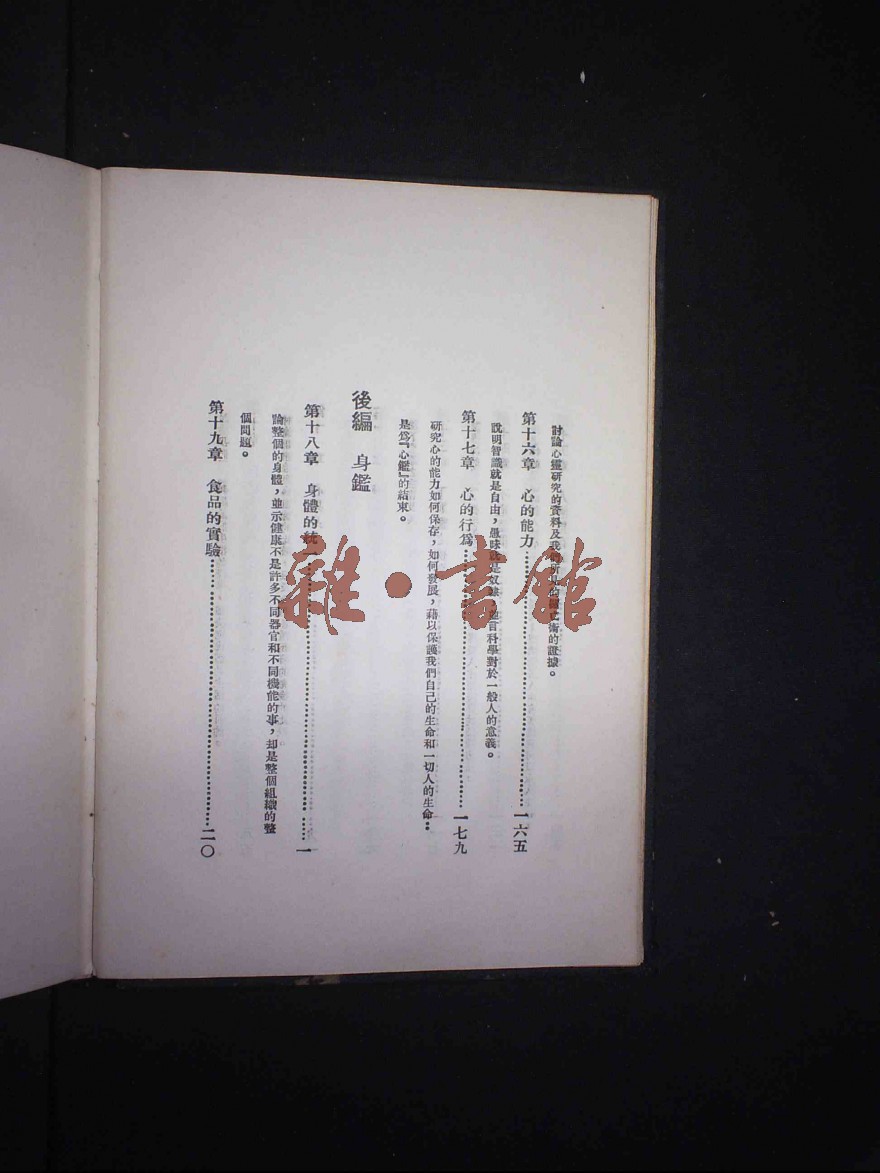 討論心靈研究的資料及我所見的術的證據。
第十六章 心的能力……一六五
說明智識就是自由，愚昧就是奴隸，並言科學對於一般人的意義。
第十七章 心的行爲……一七九
研究心的能力如何保存，如何發展，藉以保護我們自己的生命和一切人的生命：
是爲「心鑑」的結束。
後編 身鑑
第十八章 身體的統一……一
論整個的身體，並示健康不是許多不同器官和不同機能的事，却是整個組織的整
個問題。
第十九章 食品的實驗……二〇
雜·書館